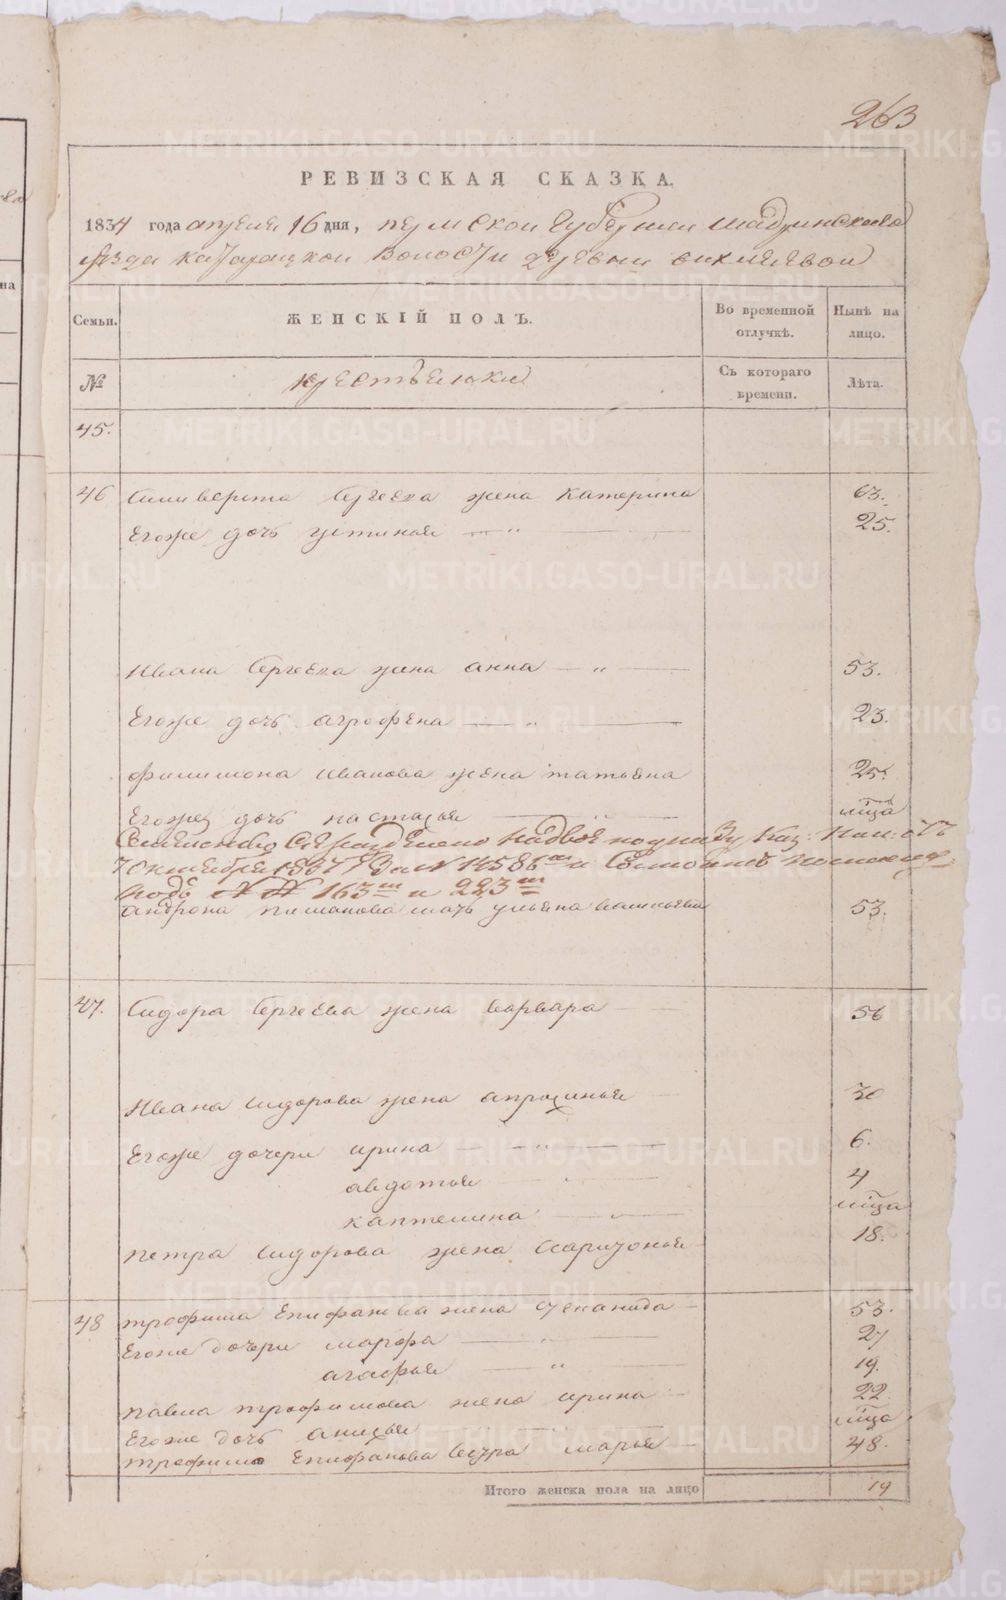 263
РЕВИЗСКАЯ СКАЗКА.
1834 года апреля 16 дня, пермской губернии шадринскаго
уезда катарацкой волости деревни
Семьи.
ЖЕНСКІЙ ПОЛЪ.
Во временной отлучкѣ.
Нынѣ на лицо.
№
крестьянки
Съ котораго времени.
Лѣта.
45.
46 Силиверста Сергеева жена катерина 63.
Егоже дочь устинья — " — 25.
Ивана Сергеева жена анна — " — 53.
Егоже дочь агрофена — " — 23.
филимона иванова жена татьяна 25.
Егоже дочь настасья — " — м͠ца
Семейство сие разделено надвое по указу Каз: Пал: отъ
7 октября 1837 г за № 14586 м и
подъ №№ 163 м и 223 м
андрона мать ульяна 53.
47. Сидора Сергеева жена варвара 56
Ивана сидорова жена апросинья 30
Егоже дочери ирина — " — 6.
авдотья — 4
каптелина — м͠ца
петра сидорова жена 18.
48 трофима Епифанова жена 53.
Егоже дочери марфа — " — 27
агафья — " — 19.
павла трофимова жена ирина — 22
Егоже дочь анисья — м͠ца
трофима Епифанова сестра марья — 48.
Итого женска пола на лицо 19
METRIKI.GASO-URAL.RU